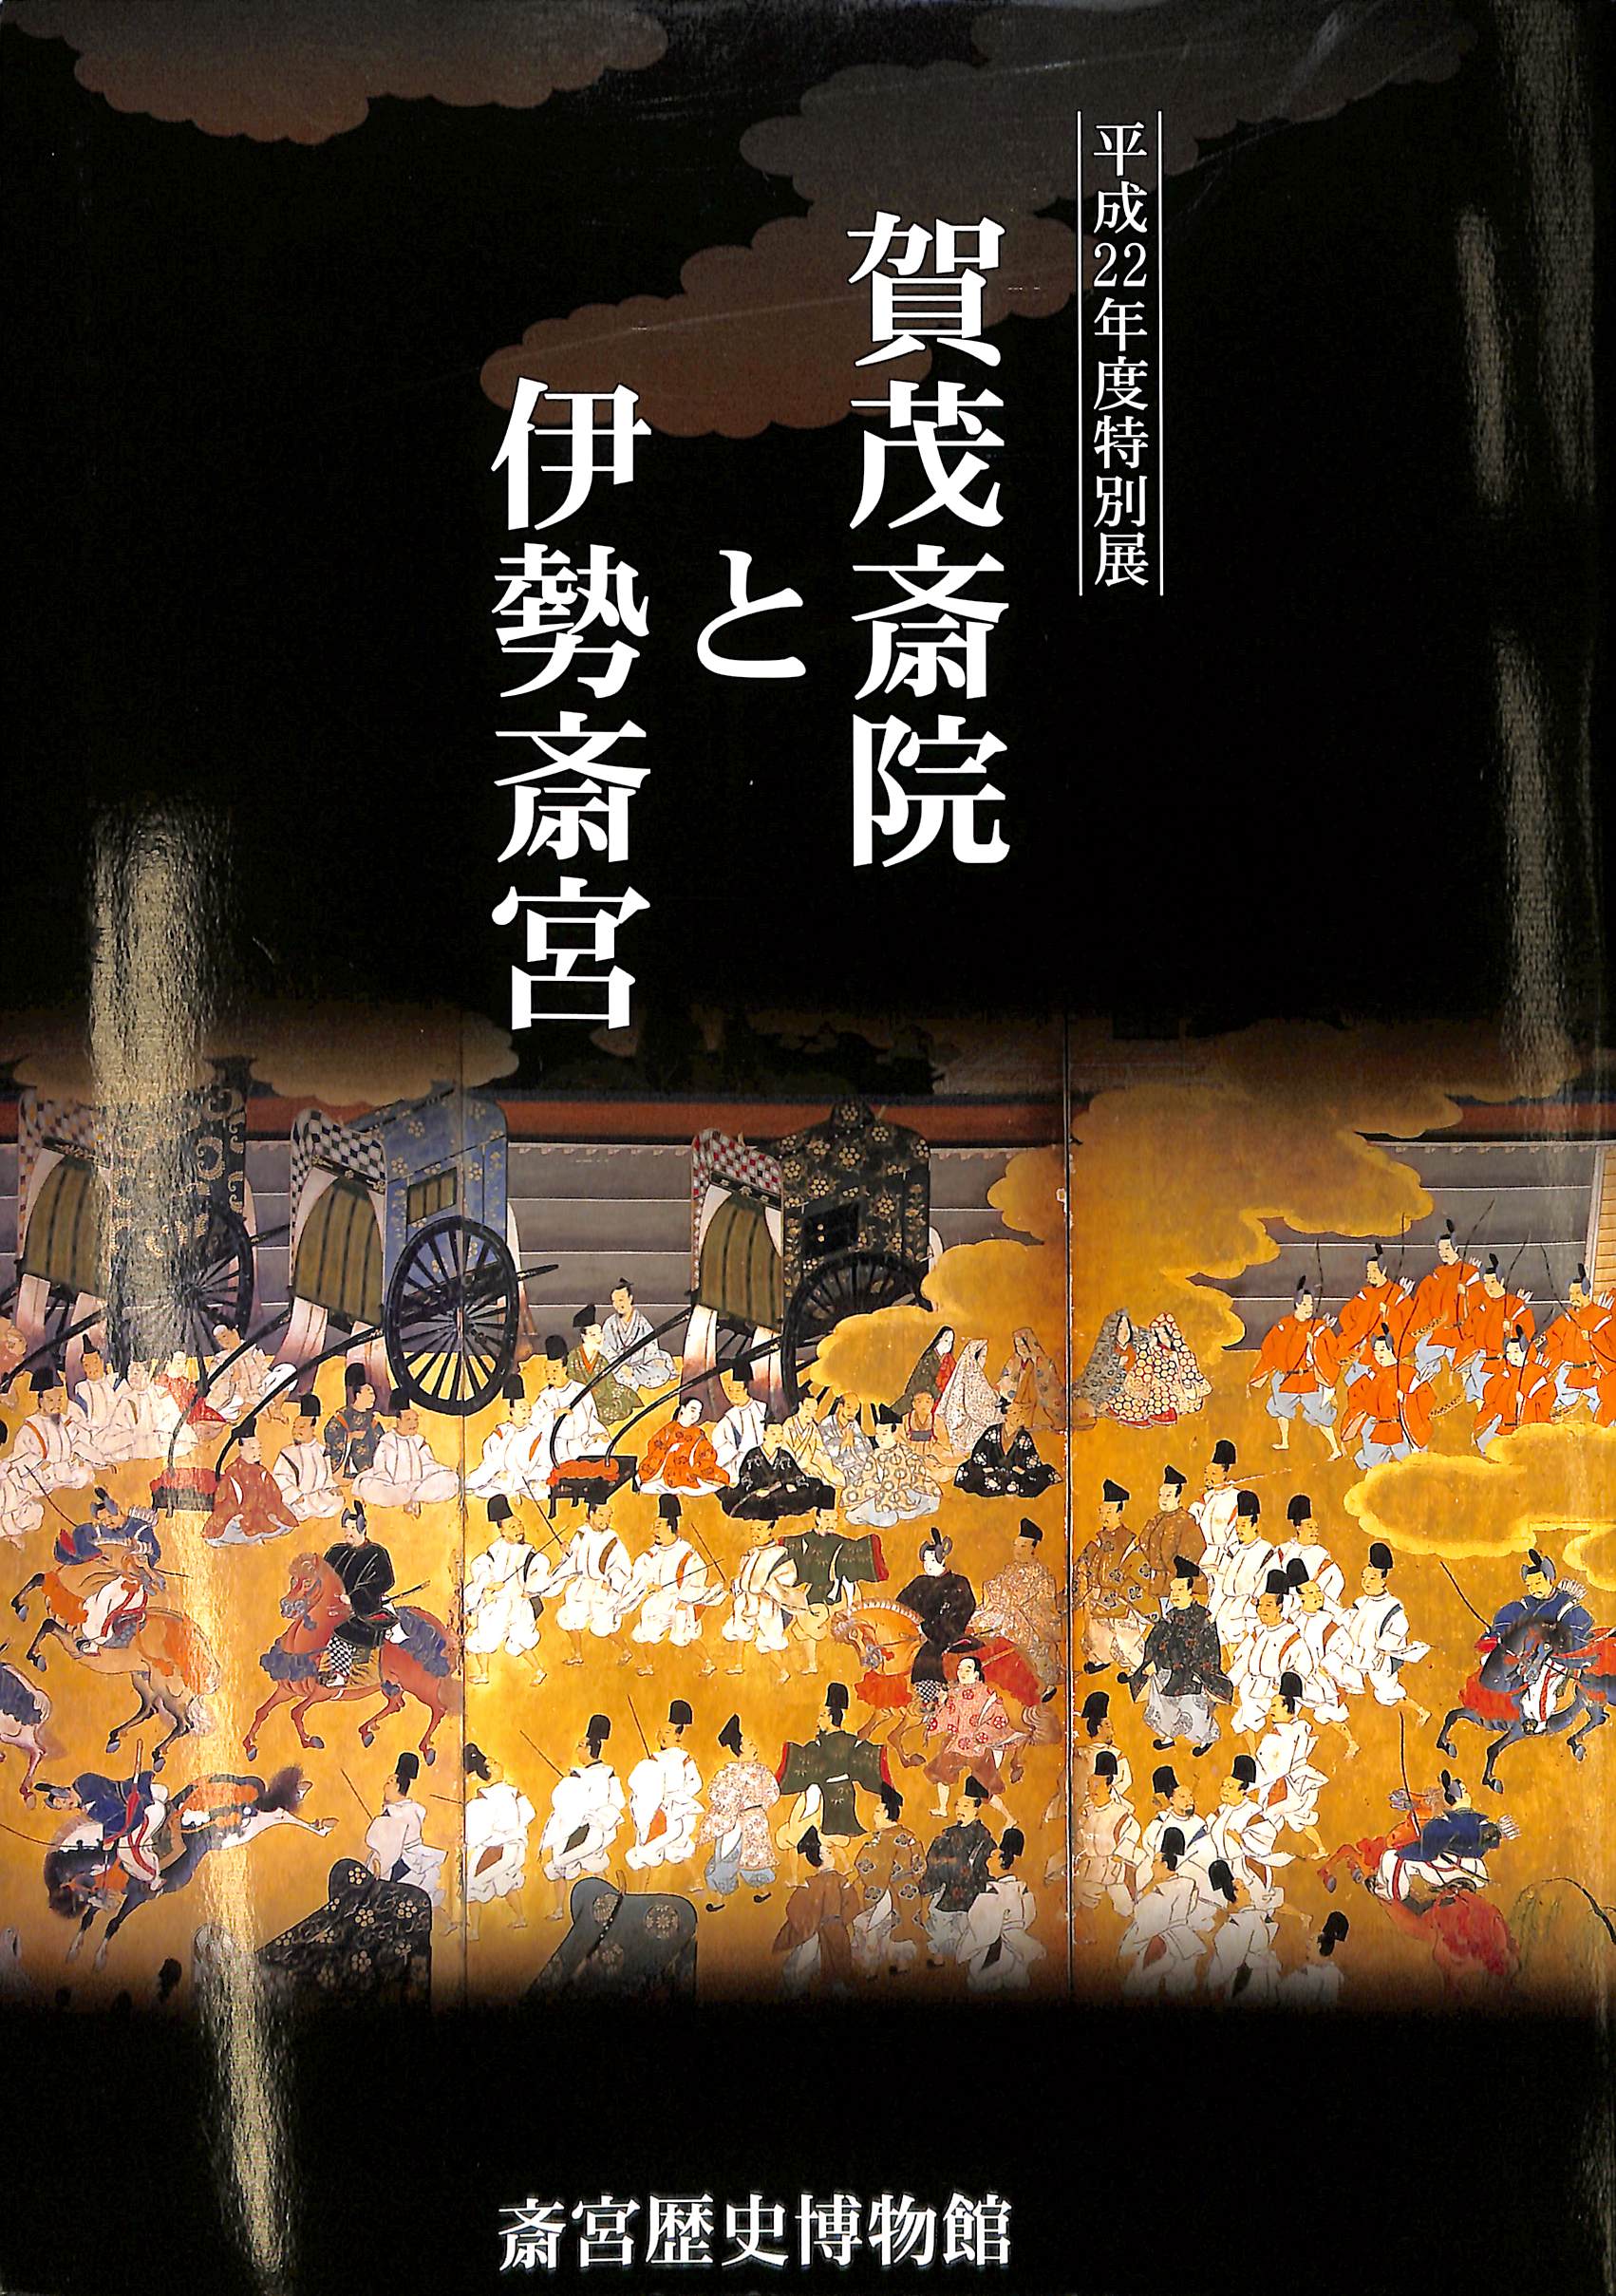 平成22年度特別展
賀茂斎院
と
伊勢斎宮
斎宮歴史博物館